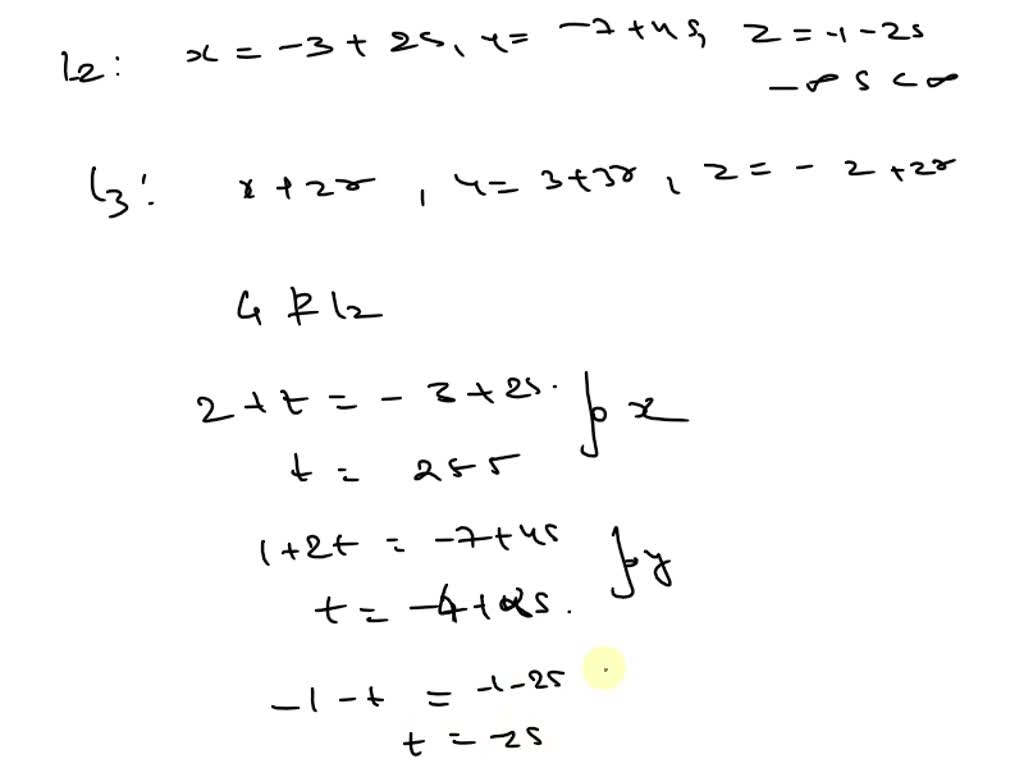 L2: x = -3 + 2s, y = -7+4s, z = -1-2s
-∞ s < ∞
L3: x + 2r, y = 3+3r, z = - 2 +2r
L2
2 + t = - 3 + 2s. } x
t = 2s 5
1+2t = -7+4s } y
t = -4+2s.
-1 -t = -1-2s
t = 2s